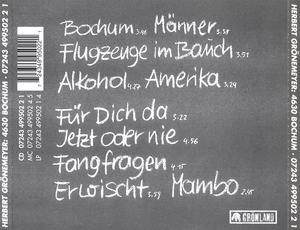 Bochum 3.48 Männer 3.58
Flugzeuge im Bauch 3.51
Alkohol 4.27 Amerika 3.24
Für Dich da 3.22
Jetzt oder nie 4.56
Fangfragen 4.15
Erwischt 3.59 Mambo 2.45
GRÖNLAND
CD 07243 499502 2 1
MC 07243 499502 4 5
LP 07243 499502 1 4
HERBERT GRÖNEMEYER: 4630 BOCHUM • 07243 499502 2 1
HERBERT GRÖNEMEYER: 4630 BOCHUM • 07243 499502 2 1